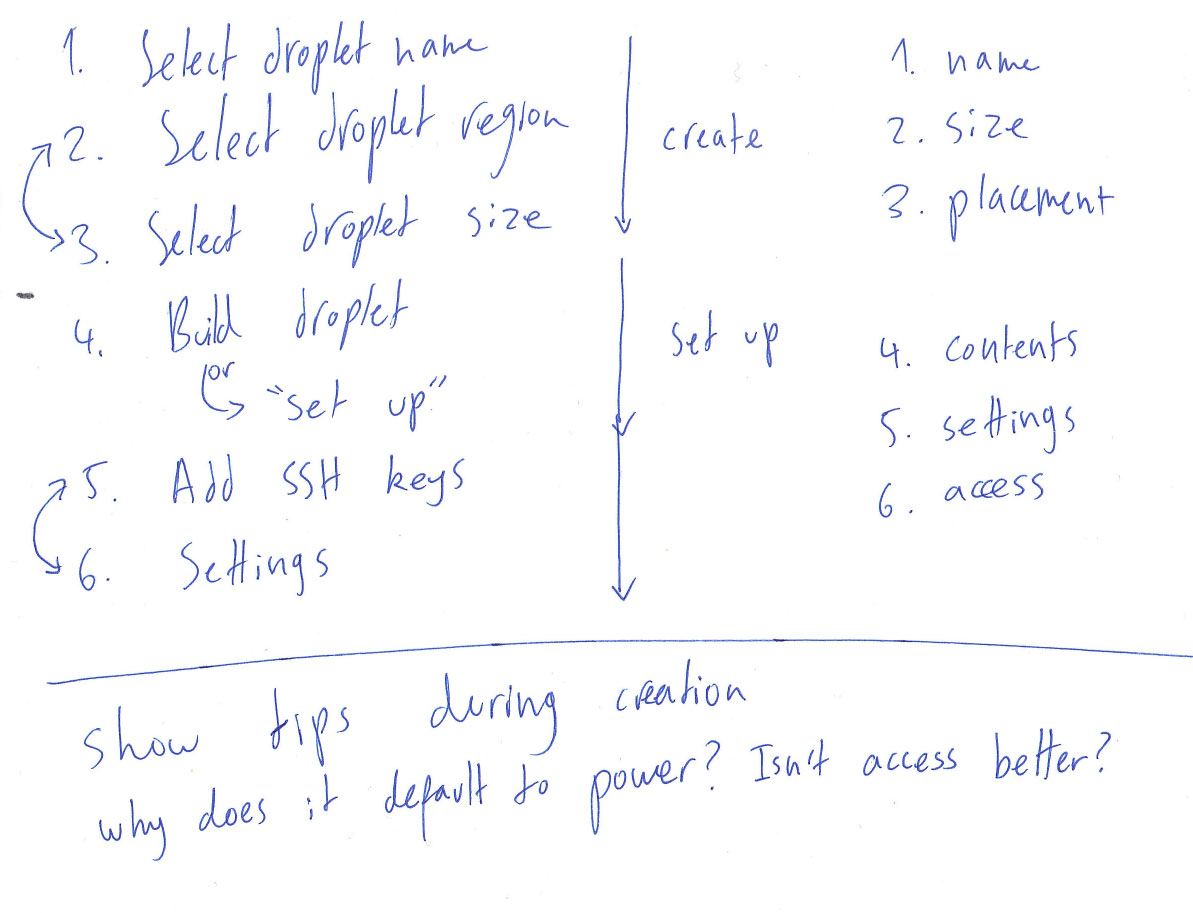 1. Select droplet name
2. Select droplet region
3. Select droplet size
4. Build droplet
or
"set up"
5. Add SSH keys
6. Settings
create
set up
1. name
2. size
3. placement
4. contents
5. settings
6. access
show tips during creation
why does it default to power? Isn't access better?